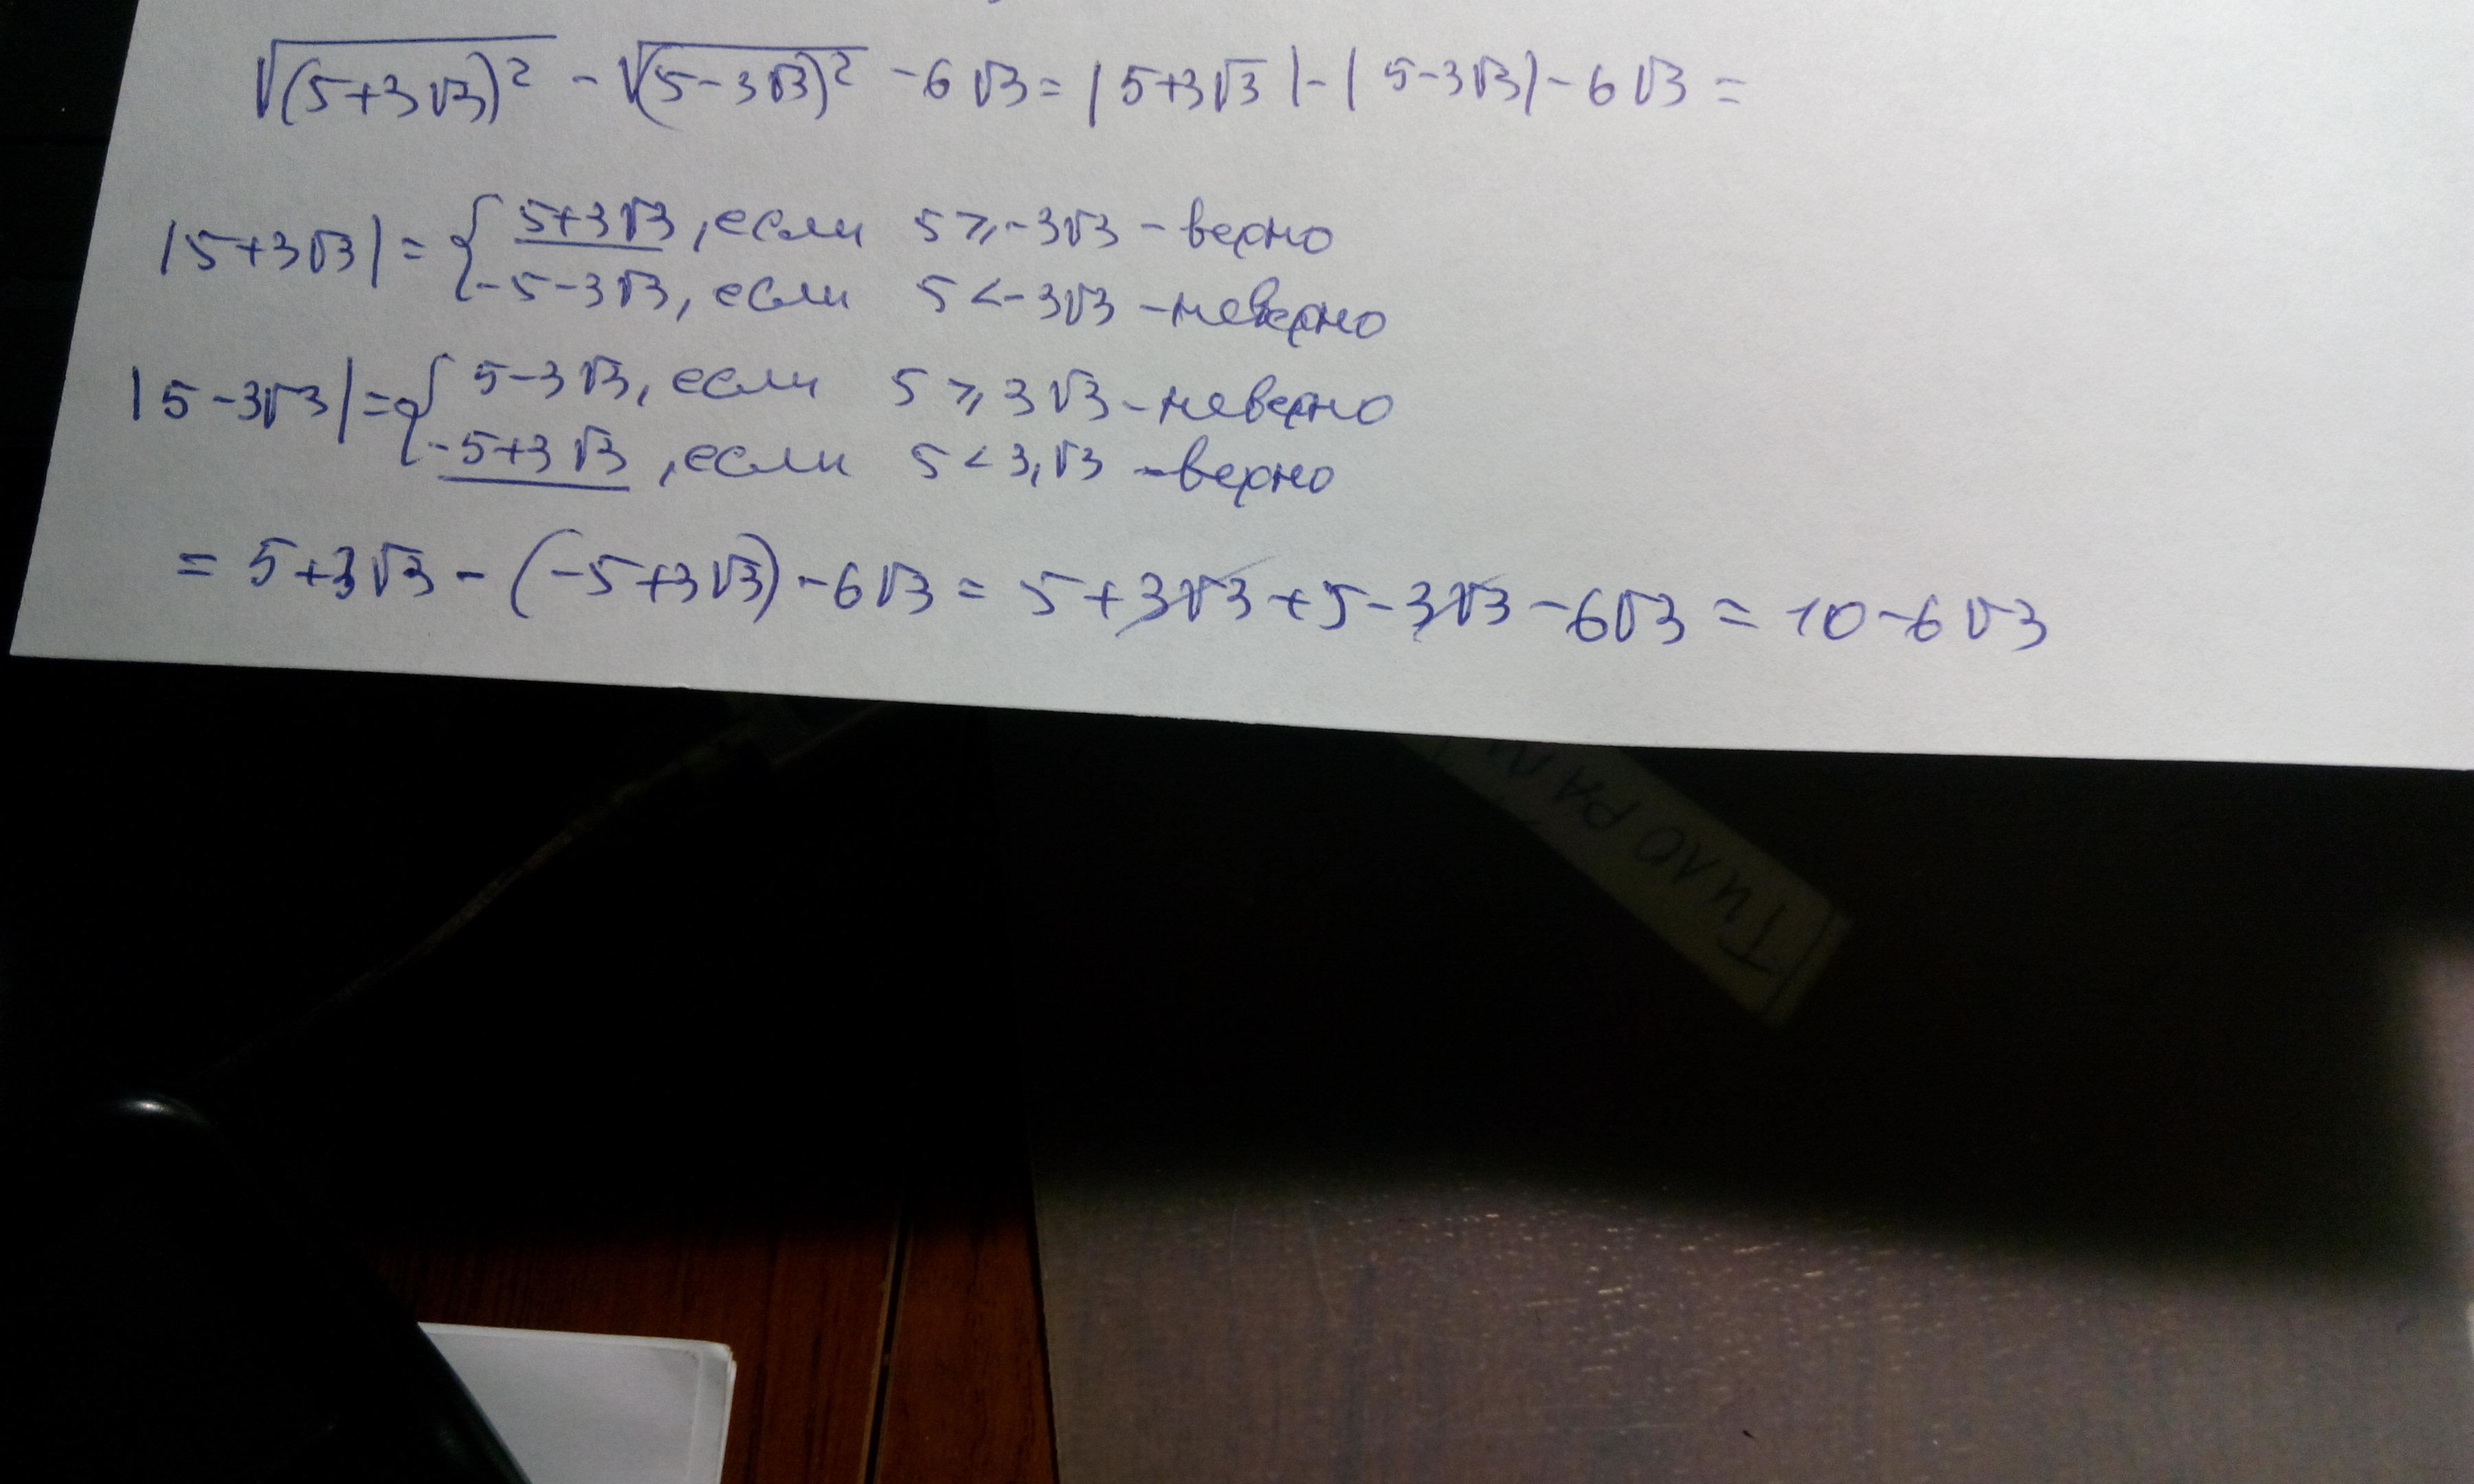 √(5+3√3)² - √(5-3√3)² - 6√3 = |5+3√3| - |5-3√3| - 6√3 =
|5+3√3| = { 5+3√3, если 5 ⩾ -3√3 - верно
-5-3√3, если 5 < -3√3 - неверно
|5-3√3| = { 5-3√3, если 5 ⩾ 3√3 - неверно
-5+3√3, если 5 < 3√3 - верно
= 5+3√3 - (-5+3√3) - 6√3 = 5+3√3+5-3√3-6√3 = 10-6√3